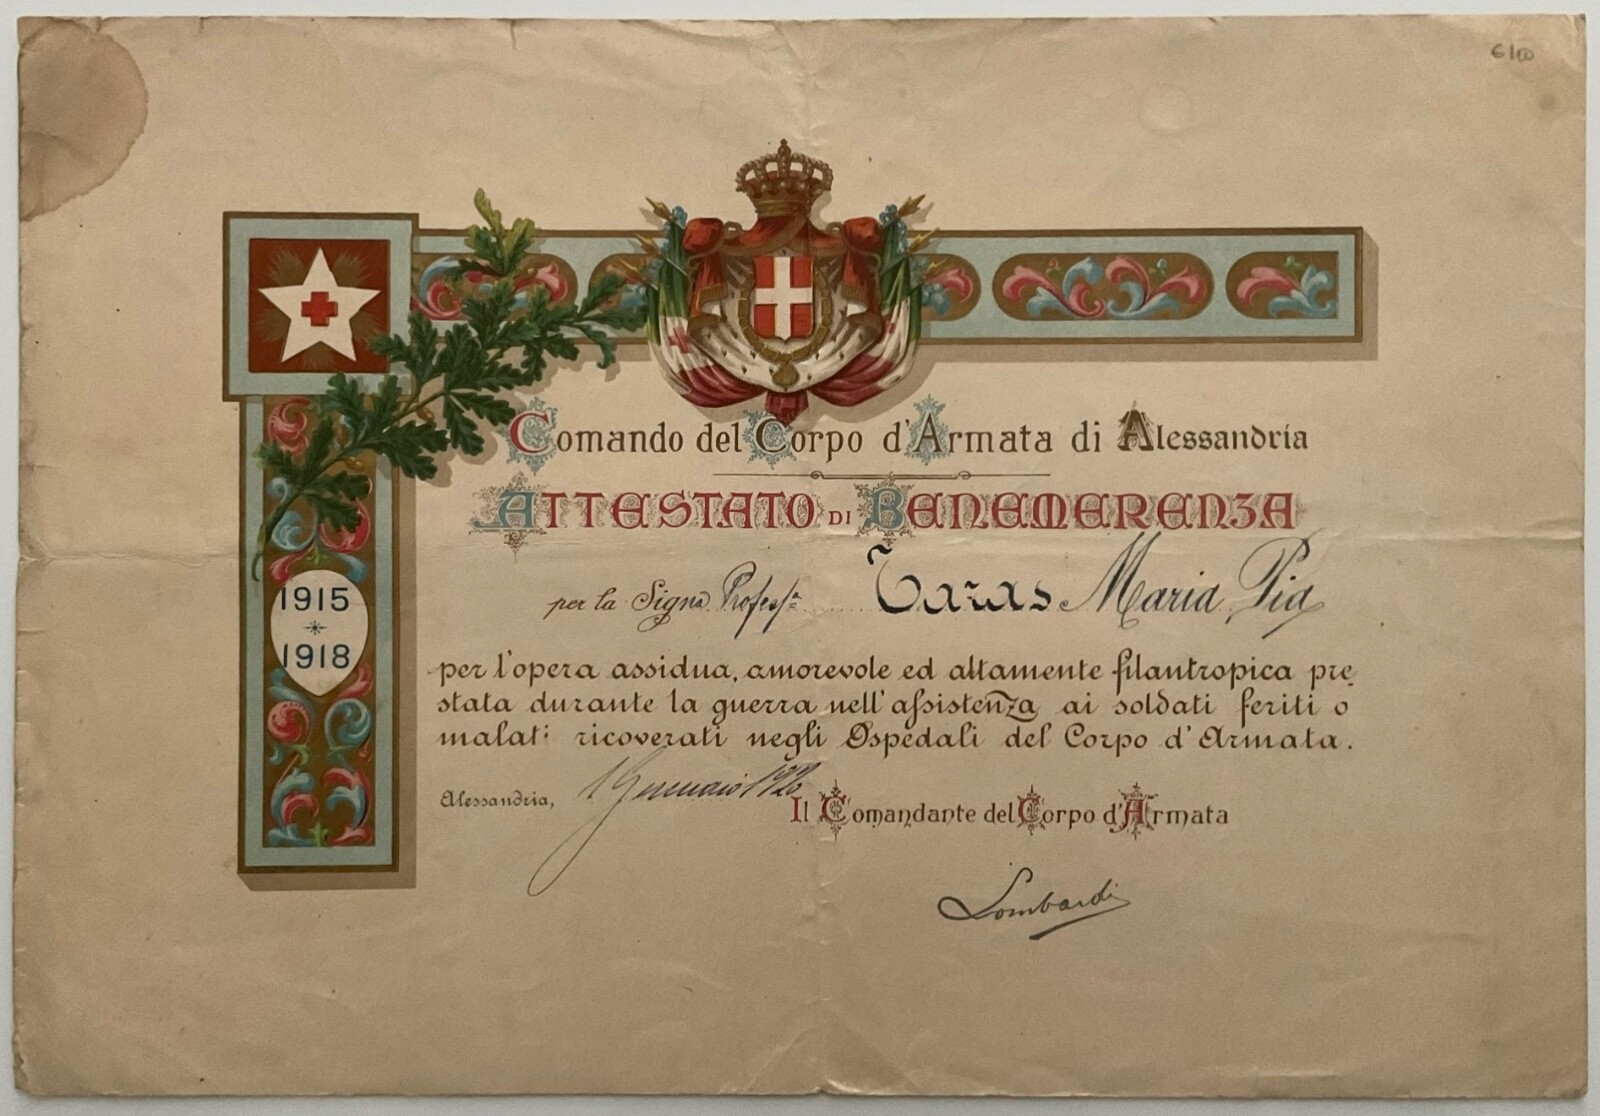 € 100
Comando del Corpo d'Armata di Alessandria
ATTESTATO DI BENEMERENZA
per la Signa Profess.a Taras Maria Pia
1915
1918
per l'opera assidua, amorevole ed altamente filantropica pre
stata durante la guerra nell'assistenza ai soldati feriti o
malati ricoverati negli Ospedali del Corpo d'Armata.
Alessandria, 1 Gennaio 1920
Il Comandante del Corpo d'Armata
Lombardi